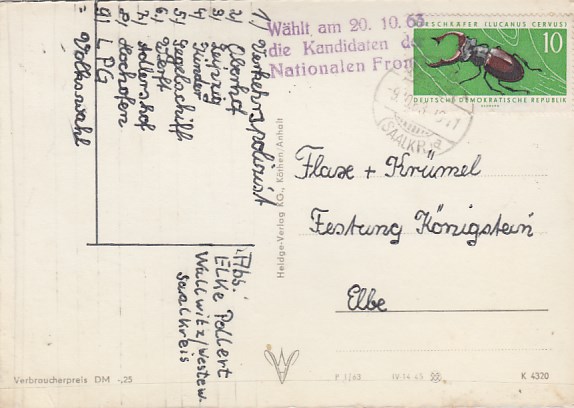 1) Verkehrspolizist
2) Oberhof
3) Leipzig
4) Gründer
5) Segelschiff
6) Werft
7) Adlershof
8) Hochofen
9) LPG
= Volkswahl
Wählt am 20. 10. 63
die Kandidaten de
Nationalen Fron
HIRSCHKÄFER (LUCANUS CERVUS)
10
DEUTSCHE DEMOKRATISCHE REPUBLIK
(SAALKR.)
a
Flaxe + Krümel
Festung Königstein
Elbe
Abs:
Elke Pollert
Wallwitz/Westew.
Saalkreis
Heldge-Verlag KG., Köthen/Anhalt
Verbraucherpreis DM -,25
P 1/63 IV-14-45
K 4320